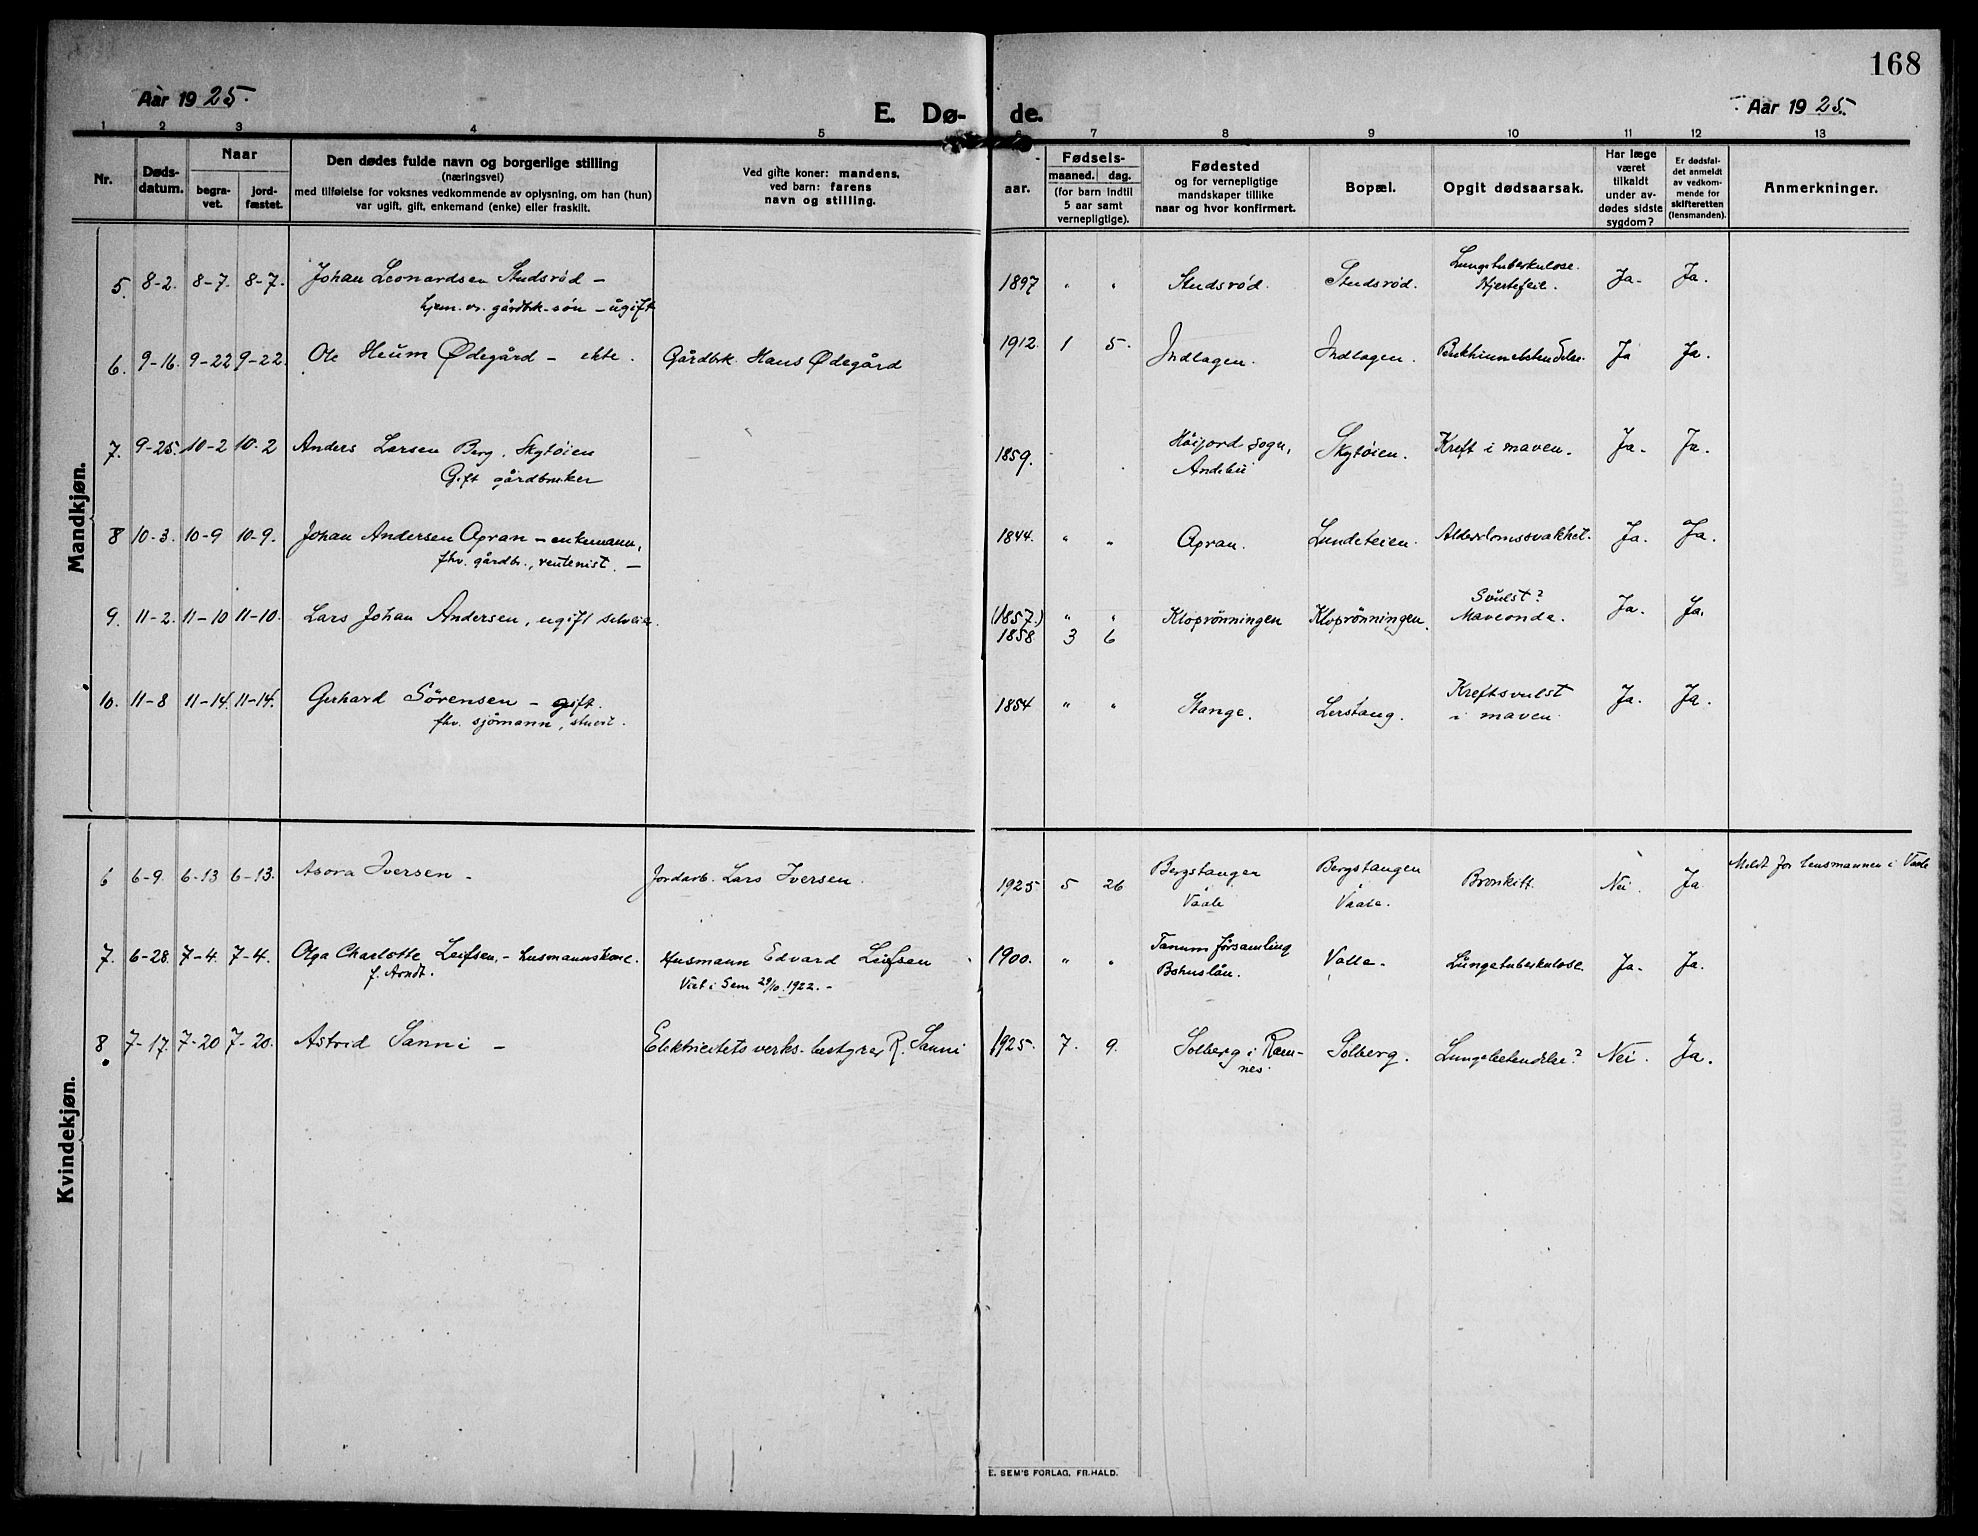 168
Aar 1925.
E. Dø- de.
Aar 1925.
1 2 3 4 5 6 7 8 9 10 11 12 13
Nr.
Døds-
datum.
Naar
begra-
vet.
jord-
fæstet.
Den dødes fulde navn og borgerlige stilling
(næringsvei)
med tilføielse for voksnes vedkommende av oplysning, om han (hun)
var ugift, gift, enkemand (enke) eller fraskilt.
Ved gifte koner: mandens,
ved barn: farens
navn og stilling.
aar.
Fødsels-
maaned. dag.
(for barn indtil
5 aar samt
vernepligtige).
Fødested
og for vernepligtige
mandskaper tillike
naar og hvor konfirmert.
Bopæl.
Opgit dødsaarsak.
Har læge
været
tilkaldt
under av-
dødes sidste
sygdom?
Er dødsfal-
det anmeldt
av vedkom-
mende for
skifteretten
(lensmanden).
Anmerkninger.
Mandkjøn.
5. 8-2. 8-7. 8-7. Johan Leonardsen Studsrød – 1897 " " Studsrød. Studsrød. Lungetuberkulose. Ja. Ja.
gårdbr. søn – ugift Hjertefeil.
6. 9-16. 9-22 9-22. Ole Heum Ødegård – ekte. Gårdbk. Hans Ødegård 1912. 1 5. Indlagen. Indlagen. Ja Ja.
7. 9-25. 10-2 10-2 Anders Larsen Berg, Skytøien 1859. Høijord sogn, Skytøien. Kreft i maven. Ja. Ja.
Gift gårdbruker Andebu
8 10-3. 10-9 10-9. Johan Andersen Apran – enkemann, 1844. " " Apran. Lundeteien. Alderdomssvakhet. Ja. Ja.
fhv. gårdbr., rentenist. –
9. 11-2. 11-10 11-10. Lars Johan Andersen, ugift selveier. (1857.) " " Kloprønningen Kloprønningen. Svulst? Ja. Ja.
1858 3 6 Maveonde.
10. 11-8 11-14. 11-14. Gerhard Sørensen – gift. 1854 " " Stange. Lerstang. Kreftsvulst Ja. Ja.
fhv. sjømann, i maven.
Kvindekjøn.
6 6-9. 6-13 6-13. Asora Iversen – Jordarb. Lars Iversen. 1925 5 26 Bergstangen Bergstangen Bronkitt. Nei. Ja Meldt for lensmannen i Vaale
Vaale Vaale.
7. 6-28. 7-4. 7-4. Olga Charlotte Leifsen, – husmannskone. Husmann Edvard Leifsen 1900. " " Tanum församling Valle. Lungetuberkulose. Ja. Ja.
f. Arndt. Viet i Sem 29/10. 1922. – Bohuslän.
8. 7-17. 7-20 7-20. Astrid Sanni – Elektricitetsverks-bestyrer R. Sanni 1925. 7. 9. Solberg i Ram- Solberg. Lungebetendelse? Nei. Ja.
nes.
E. SEM'S FORLAG, FR.HALD.